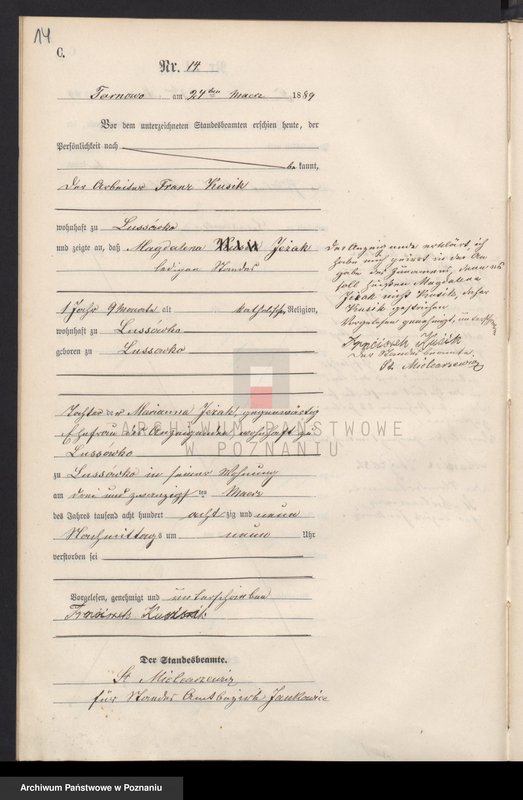 14
C.
Nr. 14.
Tarnowo, am 24ten Maerz 1889
Vor dem unterzeichneten Standesbeamten erschien heute, der
Persönlichkeit nach
be kannt,
Der Arbeiter Franz Kusik
wohnhaft zu Lussówko
und zeigte an, daß Magdalena Jeżak
ledigen Standes
1 Jahr 9 Monate alt katholischer Religion,
wohnhaft zu Lussowko
geboren zu Lussowko
Tochter der Marianna Jeżak, gegenwärtig
Ehefrau des Anzeigenden wohnhaft zu
Lussówko
zu Lussówko in seiner Wohnung
am drei und zwanzigsten Maerz
des Jahres tausend acht hundert acht zig und neun
Nachmittags um neun Uhr
verstorben sei
Vorgelesen, genehmigt und unterschrieben
Franciszek Kusik
Der Standesbeamte.
St. Mielcarzewicz
für Standes Amtsbezirk Jankowice
Der Anzeigende erklärt, ich
habe mich geirrt in der An
gabe des Zunamens, denn es
soll heißen Magdalena
Jeżak nicht Kusik, daher
Kusik gestrichen
Vorgelesen genehmigt, unterschrieben
Franciszek Kusik
Der Standesbeamte
St. Mielcarzewicz
ARCHIWUM PAŃSTWOWE
W POZNANIU
Archiwum Państwowe w Poznaniu